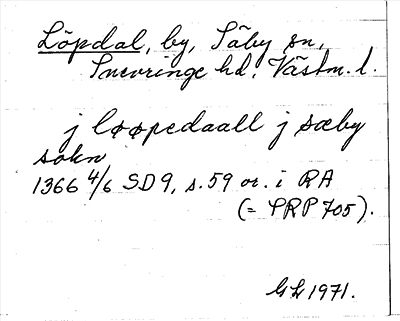 Löpdal, by, Säby sn,
Snevringe hd, Västm. l.
j løøpedaall j sæby
sokn
1366 4/6 SD 9, s. 59 or. i RA
(= SRP 705).
GL 1971.